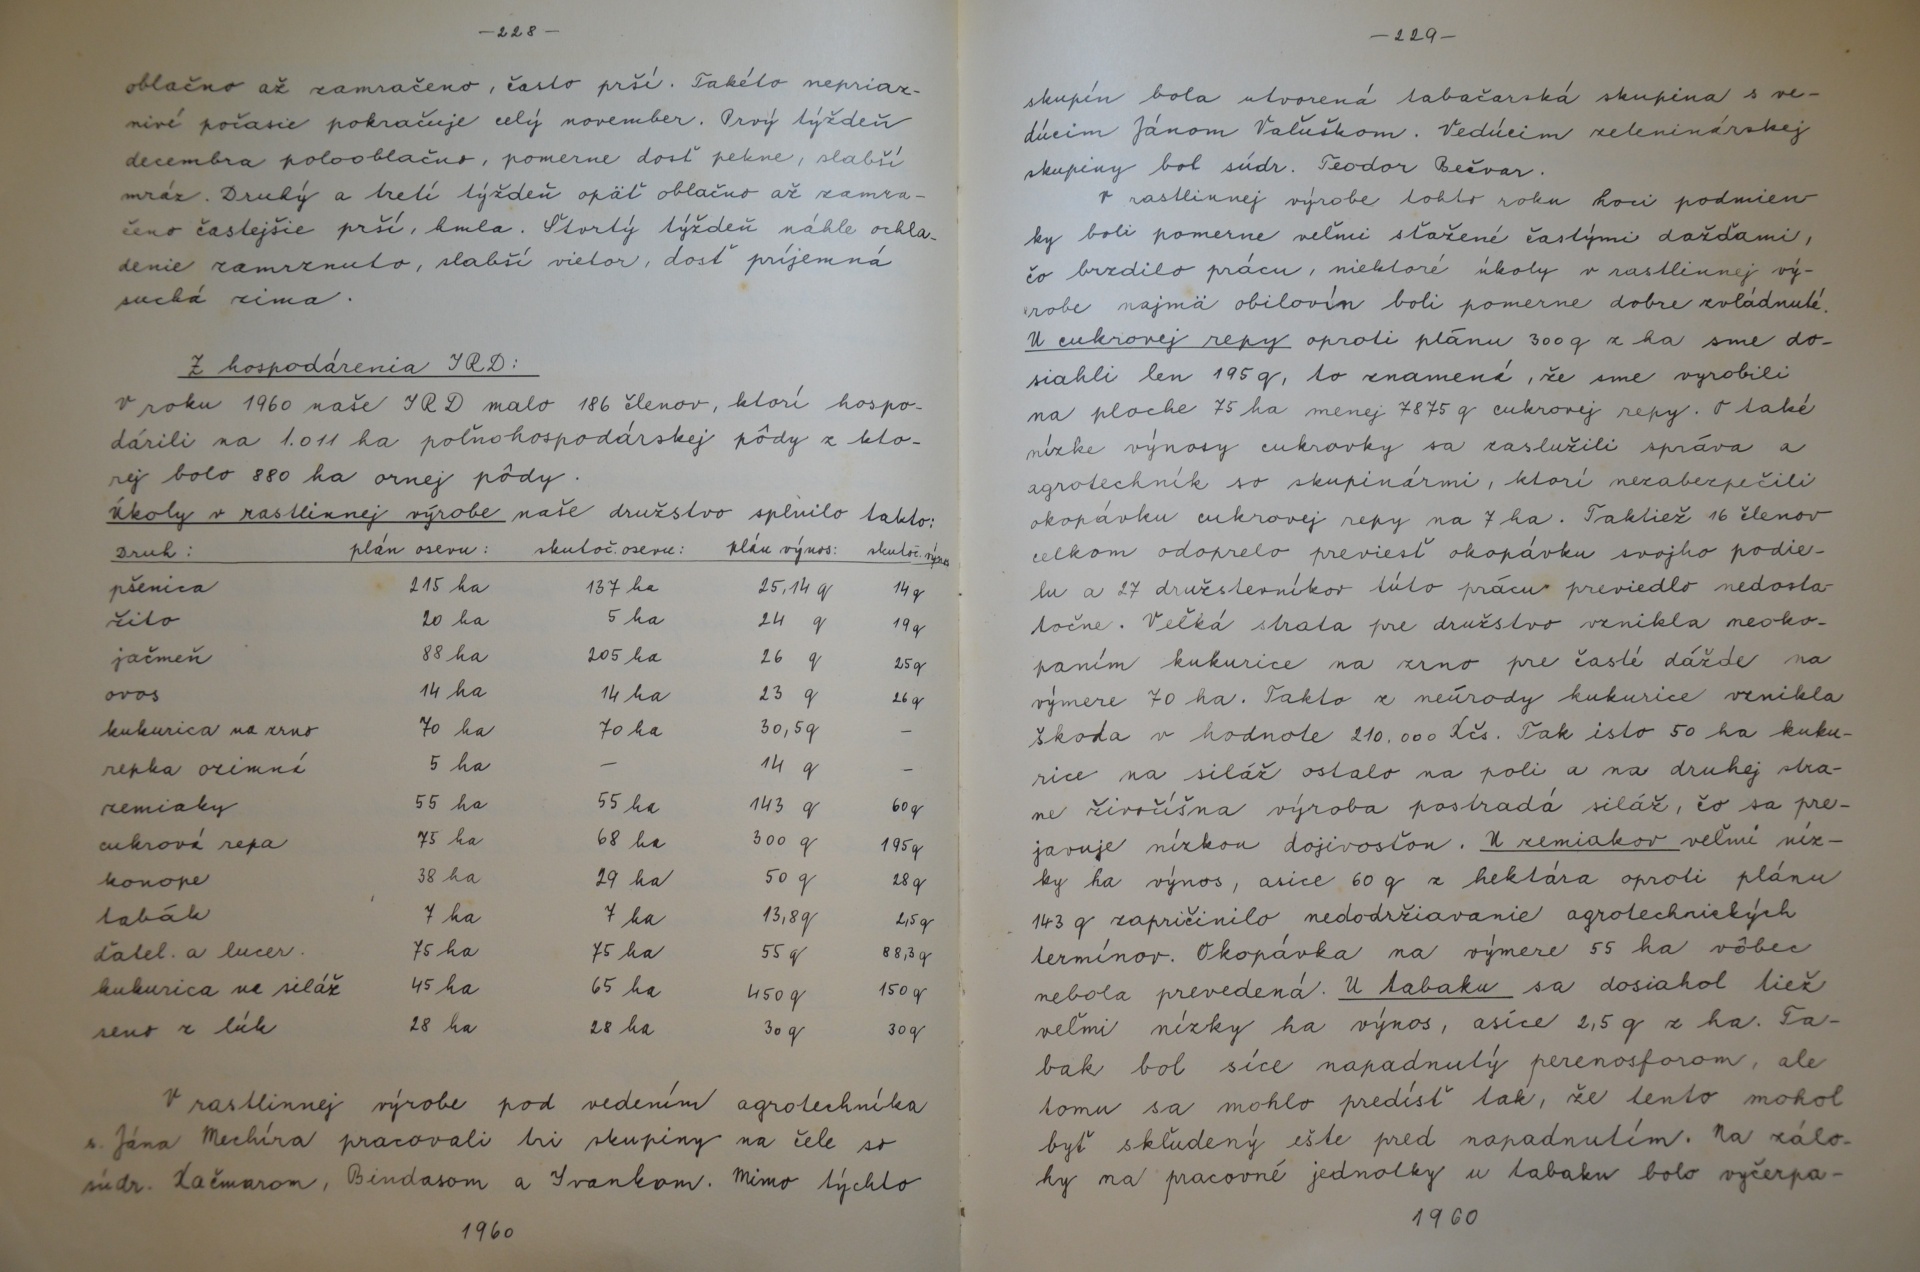 — 228 —
oblačno až zamračeno, často prší. Takéto nepriaz-
nivé počasie pokračuje celý november. Prvý týždeň
decembra polooblačno, pomerne dosť pekne, slabší
mráz. Druhý a tretí týždeň opäť oblačno až zamra-
čeno častejšie prší, hmla. Štvrtý týždeň náhle ochla-
denie zamrznuto, slabší vietor, dosť príjemná
suchá zima.
Z hospodárenia JRD:
V roku 1960 naše JRD malo 186 členov, ktorí hospo-
dárili na 1.011 ha poľnohospodárskej pôdy z kto-
rej bolo 880 ha ornej pôdy.
Úkoly v rastlinnej výrobe naše družstvo splnilo takto:
Druh: plán osevu: skutoč. osevu: plán výnos: skutoč. výnos
pšenica 215 ha 137 ha 25,14 q 14 q
žito 20 ha 5 ha 24 q 19 q
jačmeň 88 ha 205 ha 26 q 25 q
ovos 14 ha 14 ha 23 q 26 q
kukurica na zrno 70 ha 70 ha 30,5 q —
repka ozimná 5 ha — 14 q —
zemiaky 55 ha 55 ha 143 q 60 q
cukrová repa 75 ha 68 ha 300 q 195 q
konope 38 ha 29 ha 50 q 28 q
tabák 7 ha 7 ha 13,8 q 2,5 q
ďatel. a lucer. 75 ha 75 ha 55 q 88,3 q
kukurica na siláž 45 ha 65 ha 450 q 150 q
seno z lúk 28 ha 28 ha 30 q 30 q
V rastlinnej výrobe pod vedením agrotechníka
s. Jána Mechíra pracovali tri skupiny na čele so
súdr. Kačmarom, Bindasom a Ivankom. Mimo týchto
1960
— 229 —
skupín bola utvorená tabačarská skupina s ve-
dúcim Jánom Valuškom. Vedúcim zeleninárskej
skupiny bol súdr. Teodor Bečvar.
V rastlinnej výrobe tohto roku hoci podmien
ky boli pomerne veľmi sťažené častými dažďami,
čo brzdilo prácu, niektoré úkoly v rastlinnej vý-
robe najmä obilovín boli pomerne dobre zvládnuté.
U cukrovej repy oproti plánu 300 q z ha sme do-
siahli len 195 q, to znamená, že sme vyrobili
na ploche 75 ha menej 7875 q cukrovej repy. O také
nízke výnosy cukrovky sa zaslužili správa a
agrotechník so skupinármi, ktorí nezabezpečili
okopávku cukrovej repy na 7 ha. Taktiež 16 členov
celkom odoprelo previesť okopávku svojho podie-
lu a 27 družstevníkov túto prácu previedlo nedosta
točne. Veľká strata pre družstvo vznikla neoko-
paním kukurice na zrno pre časté dážde na
výmere 70 ha. Takto z neúrody kukurice vznikla
škoda v hodnote 210.000 Kčs. Tak isto 50 ha kuku-
rice na siláž ostalo na poli a na druhej stra-
ne živočíšna výroba postradá siláž, čo sa pre-
javuje nízkou dojivosťou. U zemiakov veľmi níz-
ky ha výnos, asice 60 q z hektára oproti plánu
143 q zapričinilo nedodržiavanie agrotechnických
termínov. Okopávka na výmere 55 ha vôbec
nebola prevedená. U tabaku sa dosiahol tiež
veľmi nízky ha výnos, asíce 2,5 q z ha. Ta-
bak bol síce napadnutý perenosforom, ale
tomu sa mohlo predísť tak, že tento mohol
byť skľudený ešte pred napadnutím. Na zálo-
hy na pracovné jednotky u tabaku bolo vyčerpa-
1960